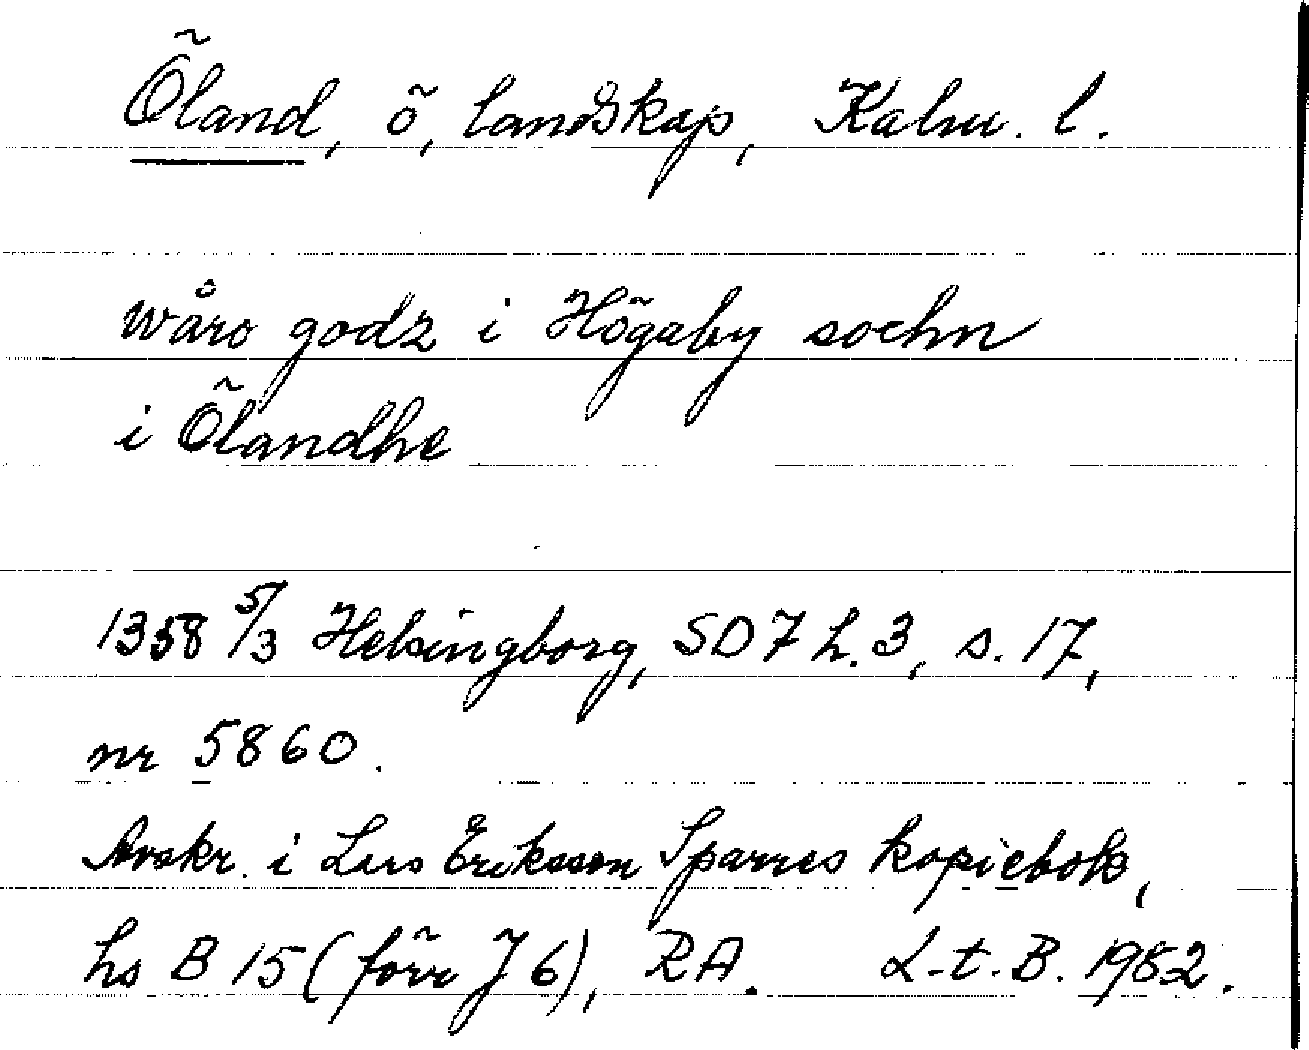 Öland, ö, landskap, Kalm. l.
wåro godz i Högaby sochn
i Ölandhe
1358 5/3 Helsingborg, SD 7 h. 3, s. 17,
nr 5860.
Avskr. i Lars Eriksson Sparres kopiebok,
hs B 15 (förr J 6), RA. L-t. B. 1982.